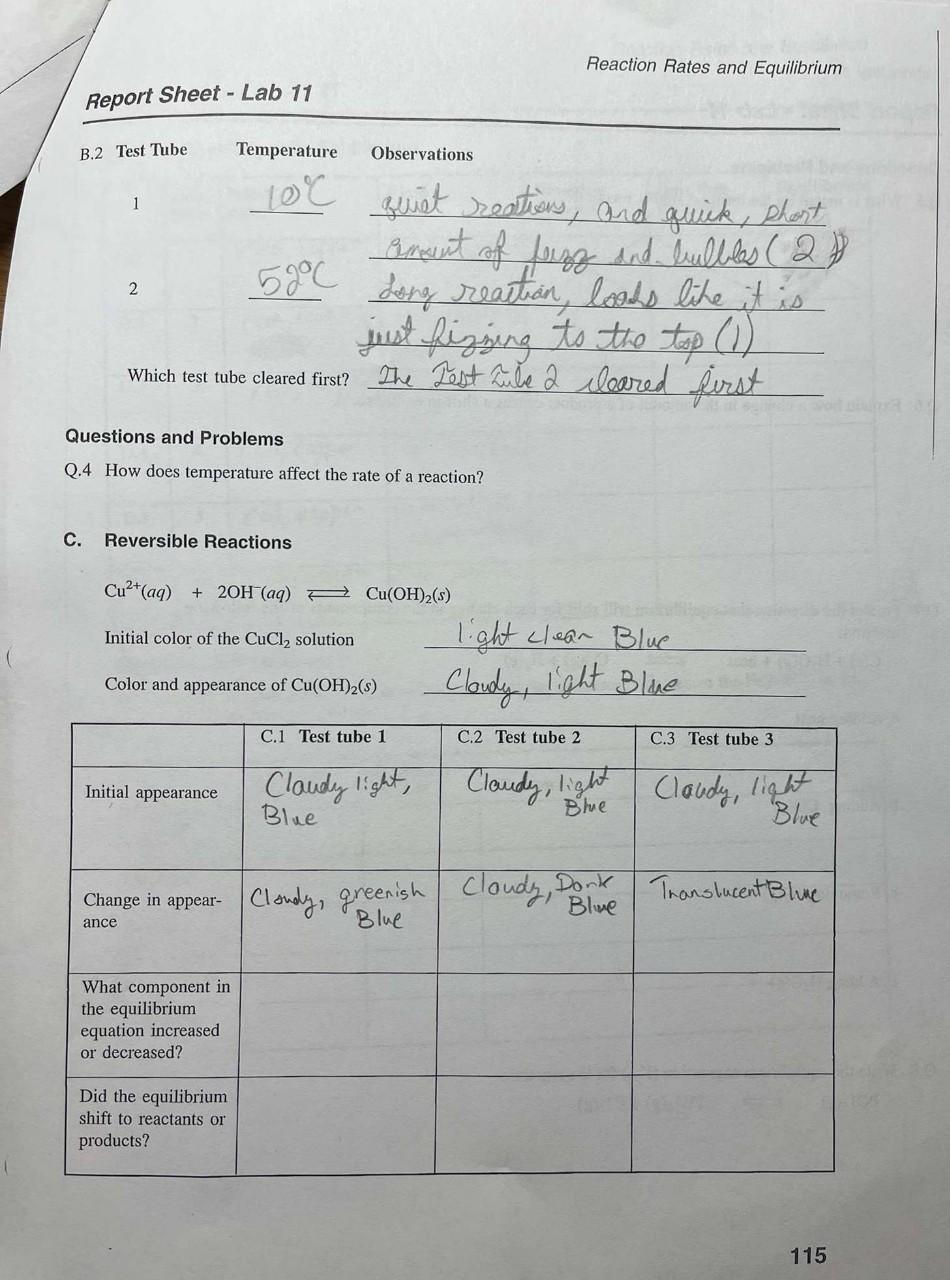 Reaction Rates and Equilibrium
Report Sheet - Lab 11
B.2 Test Tube Temperature Observations
1 10°C quiet reactions, and quick, short
amount of fuzz and bubbles (2)
2 52°C Long reaction, looks like it is
just fizzing to the top (1)
Which test tube cleared first? The Test Tube 2 cleared first
Questions and Problems
Q.4 How does temperature affect the rate of a reaction?
C. Reversible Reactions
Cu²⁺(aq) + 2OH⁻(aq) ⇌ Cu(OH)₂(s)
Initial color of the CuCl₂ solution light clear Blue
Color and appearance of Cu(OH)₂(s) Cloudy, light Blue
C.1 Test tube 1 C.2 Test tube 2 C.3 Test tube 3
Initial appearance
Cloudy light,
Blue
Cloudy, light
Blue
Cloudy, light
Blue
Change in appear-
ance
Cloudy, greenish
Blue
Cloudy, Dark
Blue
Translucent Blue
What component in
the equilibrium
equation increased
or decreased?
Did the equilibrium
shift to reactants or
products?
115